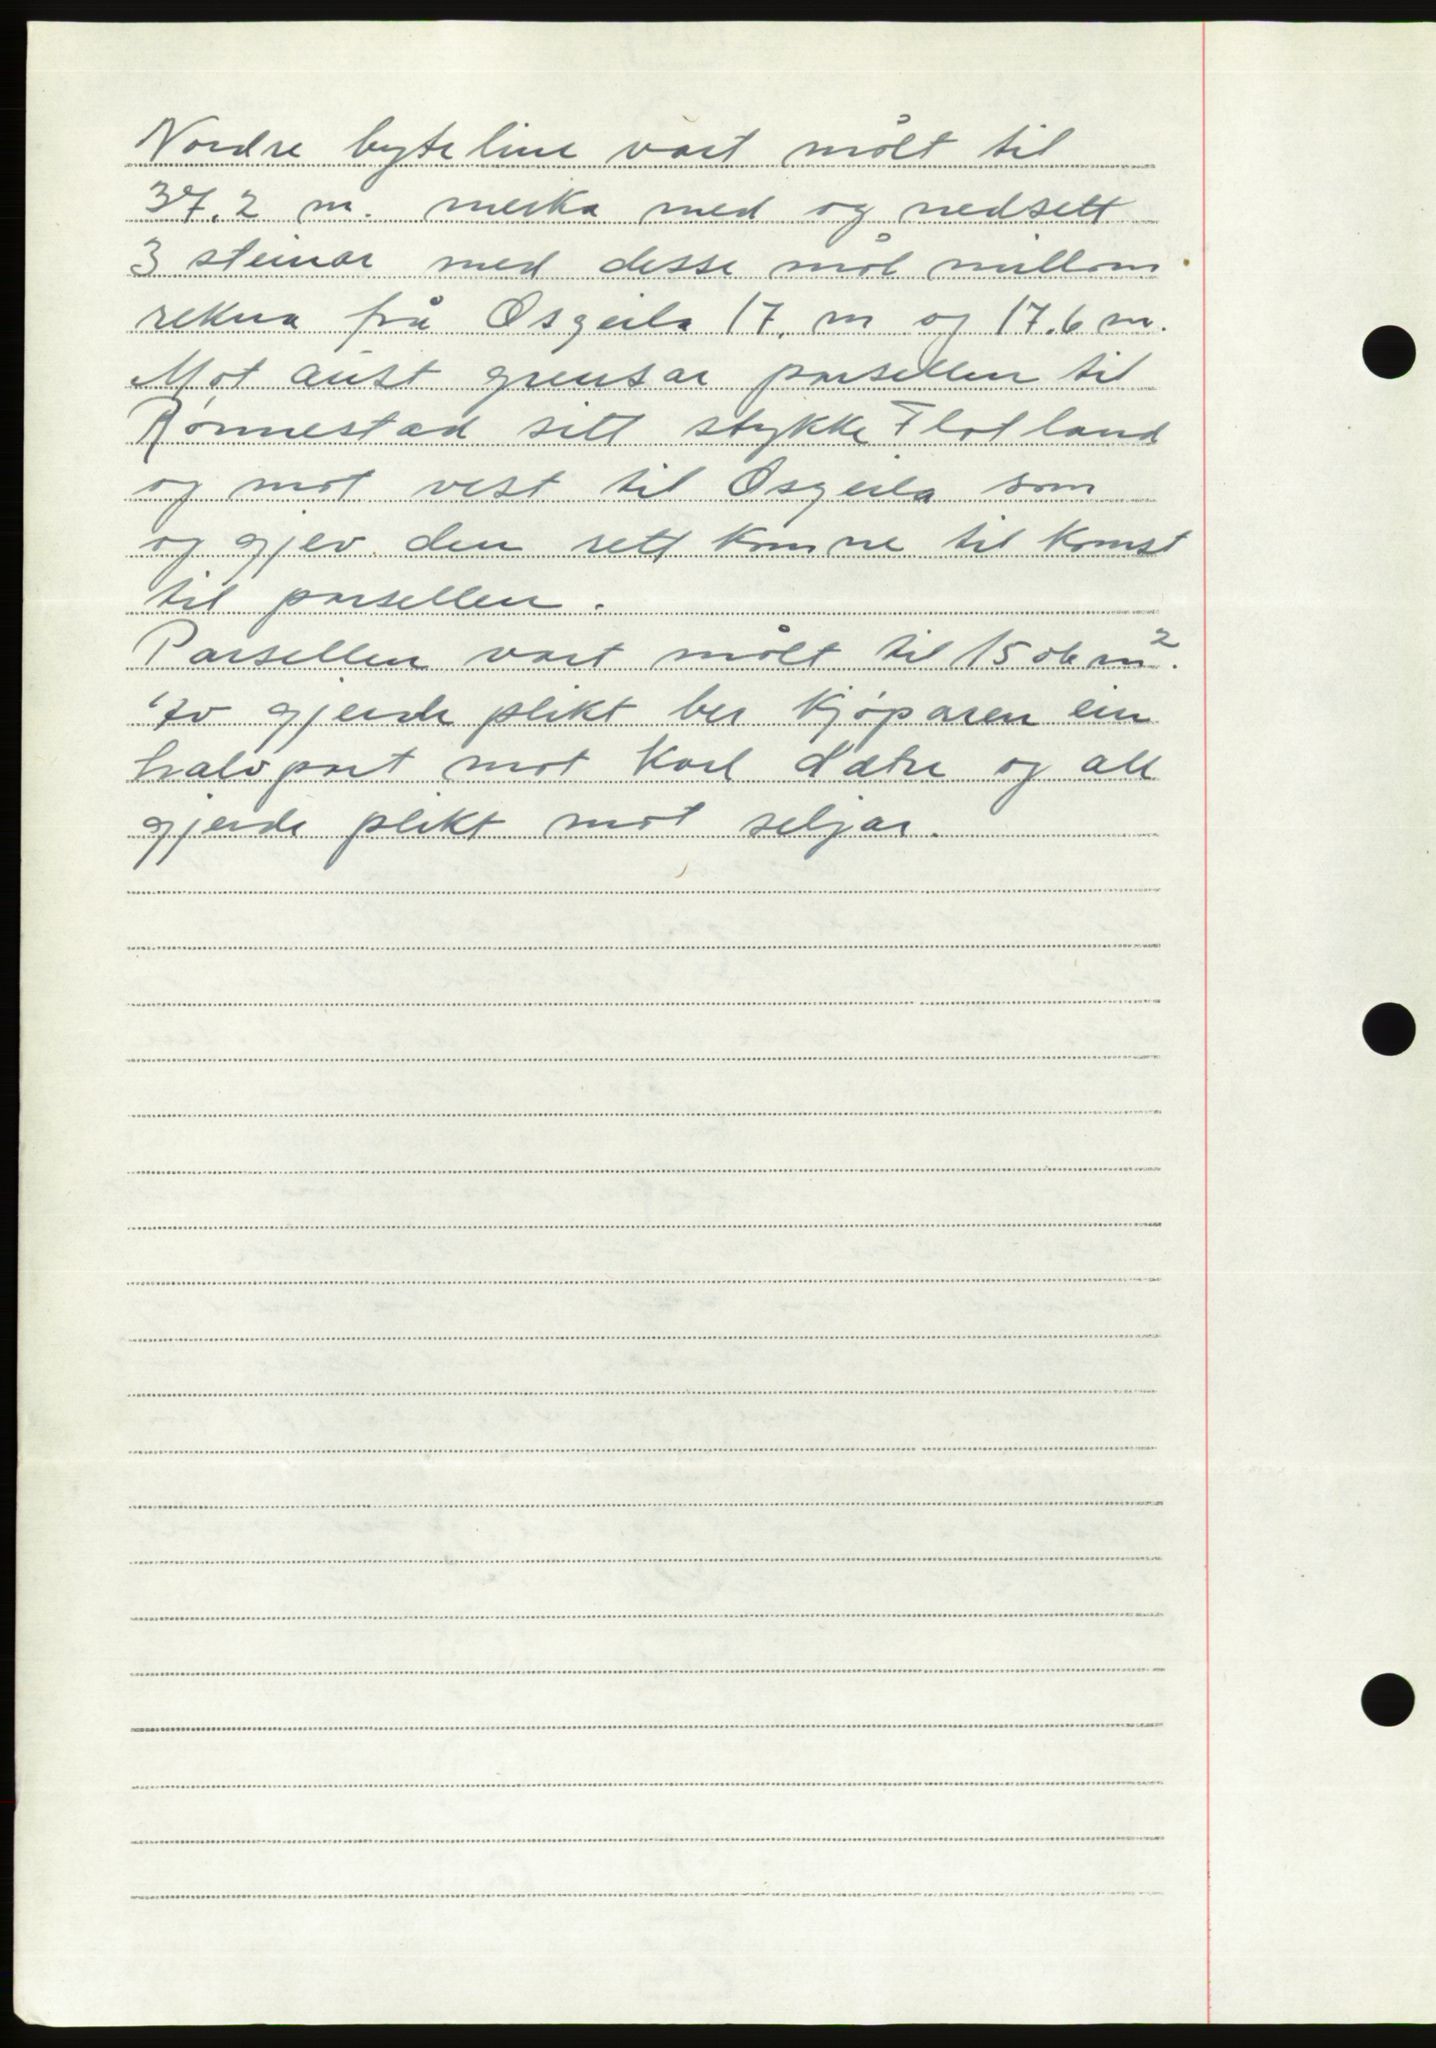 Nordre byteline vart målt til
37.2 m. merka med og nedsett
3 steinar med desse mål millom
rekna frå Osgeila 17. m og 17.6 m.
Mot aust grensar parsellen til
Rønnestad sitt stykke Flotland
og mot vest til Osgeila som
og gjev den rett komne til komst
til parsellen.
Parsellen vart målt til 1506 m².
Av gjerde plikt ber kjøparen ein
halv part mot Karl Sætre og all
gjerde plikt mot seljar.